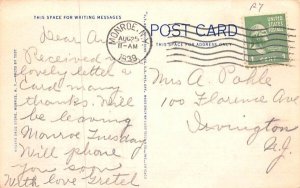 P7
THIS SPACE FOR WRITING MESSAGES
POST CARD
THIS SPACE FOR ADDRESS ONLY
MONROE, N.Y.
AUG 25
11-AM
1939
Dear An
Received y
lovely letter &
Card many
thanks. Will
be leaving
Monroe Tuesday
Will phone
you soon
With love Gretel
Mrs A. Pohle
100 Florence Ave
Irvington
N.J.